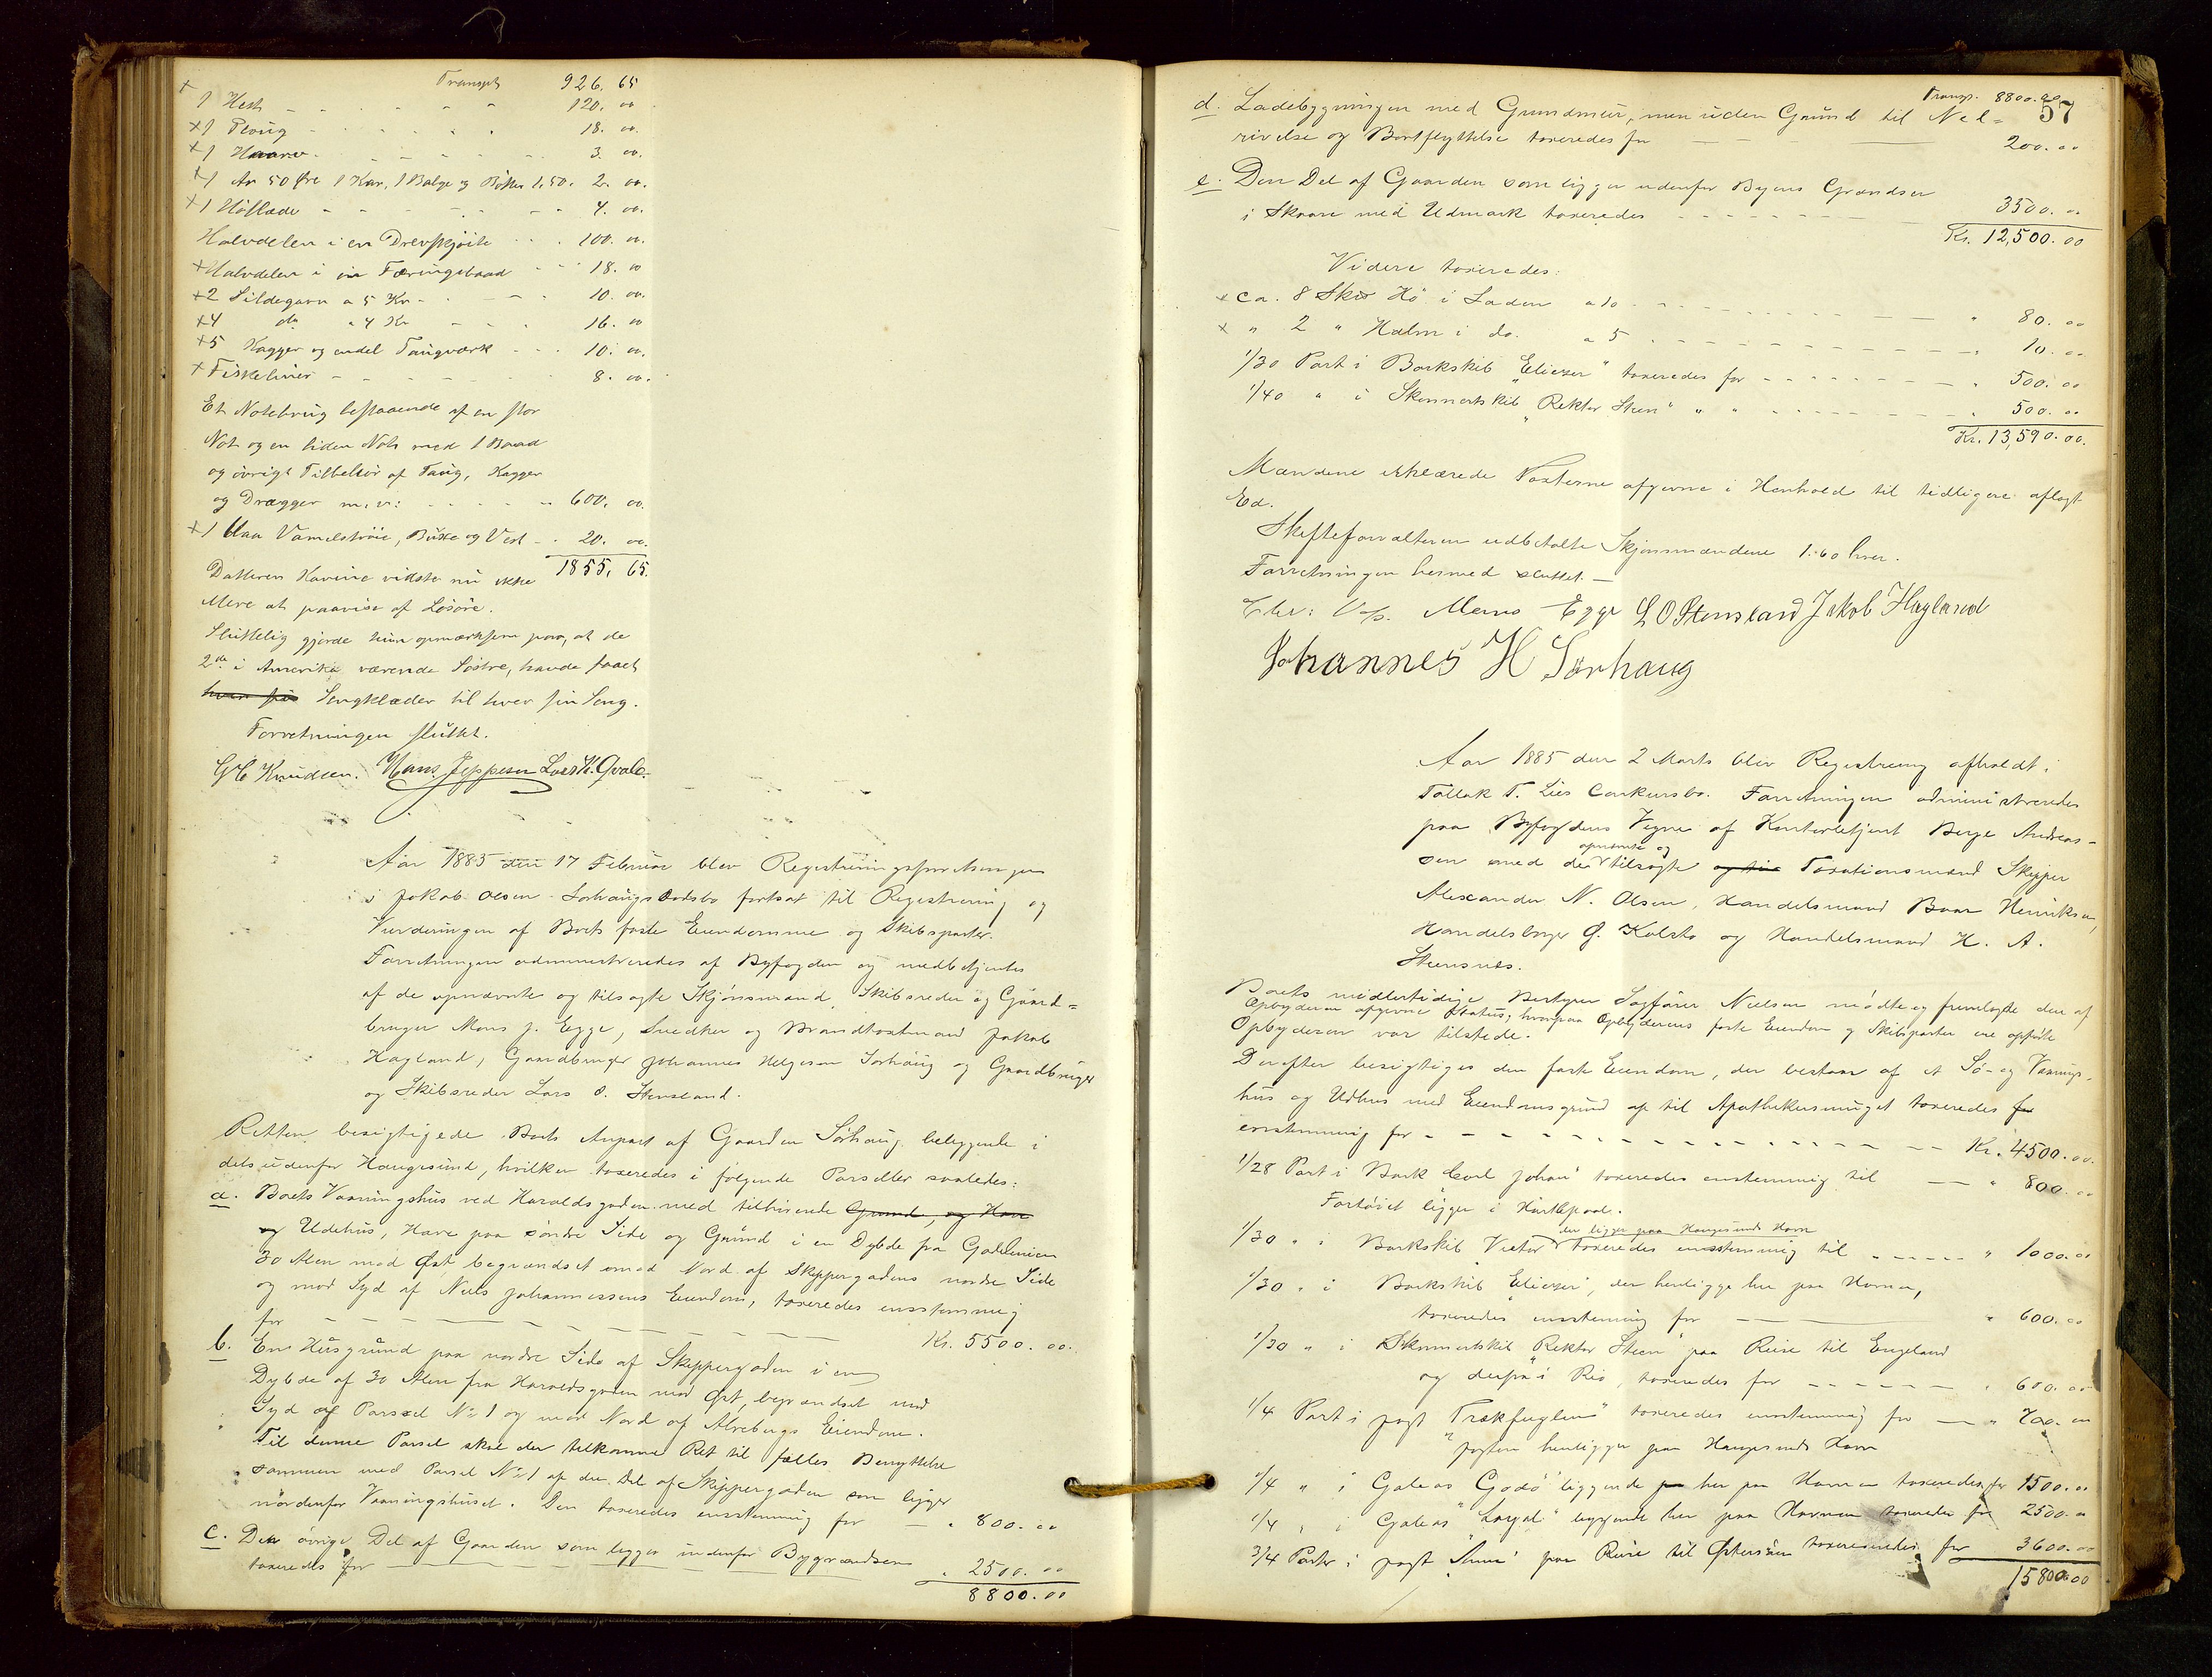 Transpt 926. 65
+ 1 Hest - - - - - - 120. 00
+ 1 Ploug - - - - - - 18. 00.
+ 1 Haarv - - - - - - 3. 00.
+ 1 Ar 50 Øre 1 Kar, 1 Balge og Bötter 1.50. 2. 00.
+ 1 Höslæde - - - - - - 4. 00.
Halvdelen i en Drevskjöite - - 100. 00.
+ Halvdelen i en Færingsbaad - - 18. 00
+ 2 Sildegarn a 5 Kr - - - 10. 00.
+ 4 do a 4 Kr - - - 16. 00
+ 5 Kagger og endel Taugværk - - - 10. 00.
+ Fiskeliner - - - - - 8. 00.
Et Notebrug bestaaende af en stor
Not og en liden Not med 1 Baad
og övrigt Tilbehör af Taug, Kagger
og Drægger m. v: - - - - 600. 00.
+ 1 blaa Vamelströie, Buxe og Vest - - 20. 00.
1855. 65.
Datteren Karine vidste nu ikke
Mere at paavise af Lösöre.
Sluttelig gjorde hun opmærksom paa, at de
2de i Amerika værende Söstre, havde faaet
hver sin Sengklæder til hver sin Seng.
Forretningen sluttet.
G C Knudsen. Hans Jeppesen Lars K. Qvale.
Aar 1885 den 17 Februar blev Registreringsforretningen
i Jakob Olsen Sorhaugs Dødsbo fortsat til Registrering og
Vurderingen af Boets faste Eiendomme og Skibsparter.
Forretningen administreredes af Byfogden og medbetjentes
af de opnævnte og tilsagte Skjönsmænd, Skibsreder og Gaard=
bruger Mons J. Egge, Snedker og Brandtaxtmand Jakob
Hagland, Gaardbruger Johannes Helgesen Sorhaug og Gaardbruger
og Skibsreder Lars O. Stensland.
Retten besigtigede Boets Anpart af Gaarden Sörhaug beliggende i
dels udenfor Haugesund, hvilken taxeredes i fölgende Parseller saaledes:
a. Boets Vaaningshus ved Haraldsgaden med tilhörende Grund, og Have
og Udehus, Have paa söndre Side og Grund i en Dybde fra Gadelinien
30 Alen mod Öst, begrændset mod Nord af Skippergadens nordre Side
og mod Syd af Niels Johannessens Eiendom, taxeredes enstemmig
for - - - - - - Kr. 5500. 00.
b. En Husgrund paa nordre Side af Skippergaden i en
Dybde af 30 Alen fra Haraldsgaden mod Öst, begrændset mod
Syd af Parsel No 1 og mod Nord af Alvebergs Eiendom.
Til denne Parsel skal der tilkomme Ret til fælles Benyttelse
sammen med Parsel No 1 af den Del af Skippergaden som ligger
nordenfor Vaaningshuset. Den taxeredes enstemmig for - " 800. 00
c. Den övrige Del af Gaarden som ligger indenfor Bygrændsen
taxeredes for - - - " 2500. 00
8800. 00
Transp. 8800.00
57
d. Ladebygningen med Grundmur, men uden Grund til Ned=
rivelse og Bortflyttelse taxeredes for - - - 200. 00
e. Den Del af Gaarden som ligger udenfor Byens Grændser
i Skaare med Udmark taxeredes - - - - 3500. 00
Kr. 12,500. 00
Videre taxeredes:
+ ca. 8 Sk℔ Hö i Laden a 10 - - - - - " 80. 00
+ " 2 " Halm i do. a 5 - - - - - " 10. 00
1/30 Part i Barkskib "Eliezer" taxeredes for - - - - " 500. 00
1/40 " i Skonnertskib "Rektor Steen" " " - - - - " 500. 00
Kr. 13,590. 00.
Mændene erklærede Taxterne afgivne i Henhold til tidligere aflagt
Ed.
Skifteforvalteren udbetalte Skjönsmændene 1.60 hver.
Forretningen hermed sluttet. —
Mons Egge L O Stensland Jakob Hagland
Johannes H Sörhaug
Aar 1885 den 2 Marts blev Registrering afholdt i
Tollak T. Lies Concursbo. Forretningen administreredes
paa Byfogdens Vegne af Kontorbetjent Berge Andreas-
sen med de opnævnte og tilsagte og tin Taxationsmænd Skipper
Alexander N. Olsen, Handelsmand Baar Henriksen,
Handelsborger G. Kolstø og Handelsmand H. A.
Steensnes.
Boets midlertidige Bestyrer Sagförer Nielsen mödte og fremlagte den af
Opbyderen afgivne Status, hvorpaa Opbyderens faste Eiendom og Skibsparter ere opförte
Opbyderen var tilstede.
Derefter besigtiges den faste Eiendom, der bestaar af et Sö- og Vaanings-
hus og Udhus med Eiendomsgrund op til Apothekersmuget taxeredes for
enstemmig for - - - - - - - Kr. 4500. 00.
1/28 Part i Bark "Carl Johan" taxeredes enstemmig til - - " 800. 00
Fartöiet ligger i Hartlepool.
1/30 " i Barkskib Victor der ligger paa Haugesunds Havn taxeredes enstemmig til - - - - " 1000. 00
1/30 " i Barkskib "Eliezer", der henligger her paa Havnen,
taxeredes enstemmig for - - - " 600. 00
1/30 " i Skonnertskib "Rektor Steen" paa Reise til Engeland
og derfra i Rio, taxeredes for - - - - - " 600. 00
1/4 Part i Jagt "Trækfuglen" taxeredes enstemmig for - " 700. 00
Jagten henligger paa Haugesunds Havn
1/4 " i Galeas "Godö" liggende paa her paa Havnen taxeredes for 1500. 00
1/4 " i Galeas liggende her paa Havnen taxeredes for 2500. 00
3/4 Parter i Jagt paa Reise til Östersöen taxeredes for 3600. 00
15800.00